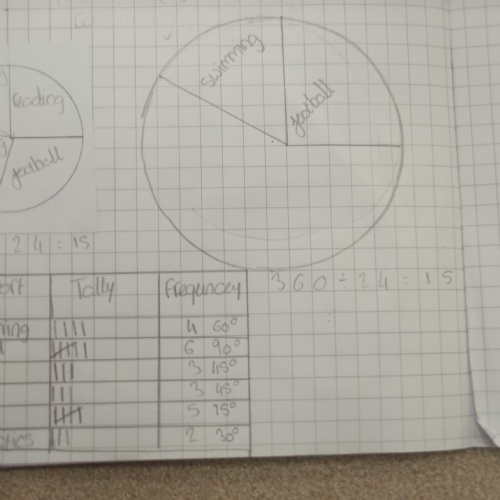 swimming
football
reading
football
24 = 15
360 ÷ 24 = 15
ort Tally Frequncey
ming 4 60°
6 90°
3 45°
3 45°
5 75°
2 30°